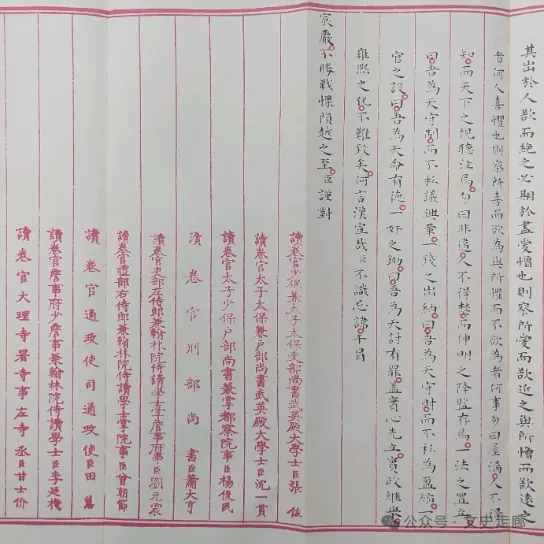 其出於人欲而絕之必期於盡愛憎也則察所愛而欲近之與所憎而欲遠之
者何人喜懼也則察所喜而欲為與所懼而不欲為者何事勿曰屋漏人不得
知而天下之視聽注焉勿曰非違人不得禁而神明之降監存焉一法之置立
曰吾為天守制而不私議興革一錢之出納曰吾為天守財而不私為盈縮一
官之設曰吾為天命有德一奸之鋤曰吾為天討有罪蓋實心先立實政繼舉
雍熙之化不難致矣何言漢宣哉臣不識忌諱干冒
宸嚴不勝戰慄隕越之至臣謹對
讀卷官少保兼太子太保吏部尚書武英殿大學士臣張位
讀卷官太子太保兼戶部尚書武英殿大學士臣沈一貫
讀卷官太子少保戶部尚書兼掌都察院事臣楊俊民
讀卷官刑部尚書臣蕭大亨
讀卷官吏部左侍郎兼翰林院侍讀學士掌詹事府事臣劉元震
讀卷官禮部右侍郎兼翰林院侍讀學士掌院事臣曾朝節
讀卷官通政使司通政使臣田蕙
讀卷官詹事府少詹事兼翰林院侍讀學士臣李廷機
讀卷官大理寺署寺事左寺丞臣甘士价
公众号·文史走廊